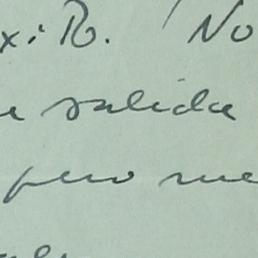 x: R. No
e salida
pero me